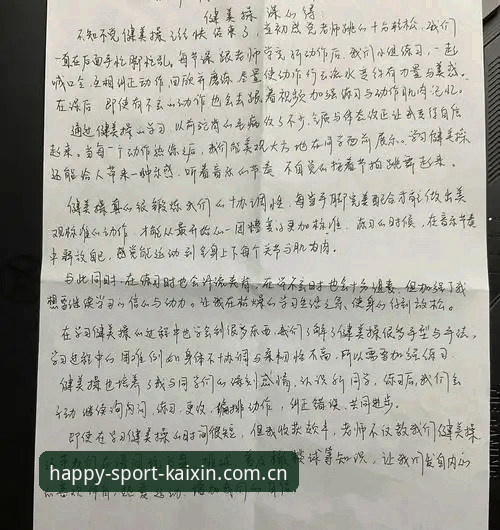 健美操 课心得
不知不觉健美操課已经快结束了，当初感觉老师跳的十分轻松，我们
一直在后面手忙脚忙乱。每节课跟老师学完新动作后，我们小组练习，一起
喊口令互相纠正动作回放并磨练，尽量使动作行云流水变得有力量与美感。
在课后 即使有不会的动作也会去跟着视频加强练习与动作肌肉记忆。
通过健美操的学习 以前驼背的毛病改了不少，气质与体态改正让我变得自信
起来。当每一个动作熟练之后，我们能美观大方地在同学面前展示。学习健美操
还能给人带来一种乐感，听着音乐的节奏 不自觉的按着节拍跳舞起来。
健美操真的很锻炼我们的协调性，每当手脚完美配合才能做出美
观标准的动作，才能从最开始的一团糟变得更加标准。练习的时候，在音乐节奏
中释放自己，感觉能运动到全身上下每个关节与肌肉。
与此同时，在练习时也会汗流夹背，在学不会时也会十分沮丧，但加强了我
想要继续学习的信心与动力。让我在枯燥的学习生活之余，使身心得到放松。
在学习健美操的过程中也学会到很多东西，我们了解了健美操很多手型与手法，
学习过程中的困难例如身体不协调与柔韧性不高，所以需要加强练习。
健美操也培养了我与同学们的深刻感情，认识新同学，练习后，我们会
主动继续询问，练习，更改，编排动作，纠正错误，共同进步。
即使在学习健美操的时间很短，但我收获颇丰，老师不仅教我们健美操
球等知识，让我们发自内心的
happy-sport-kaixin.com.cn